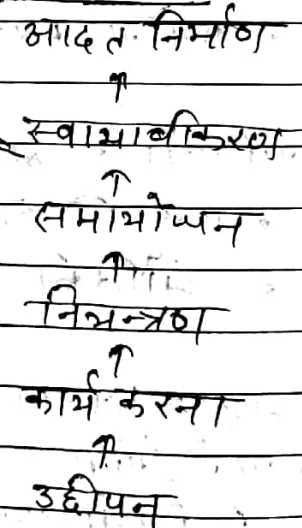 आदत निर्माण
↑
स्वाभावीकिरण
↑
समायोजन
↑
नियन्त्रण
↑
कार्य करना
↑
उद्दीपन